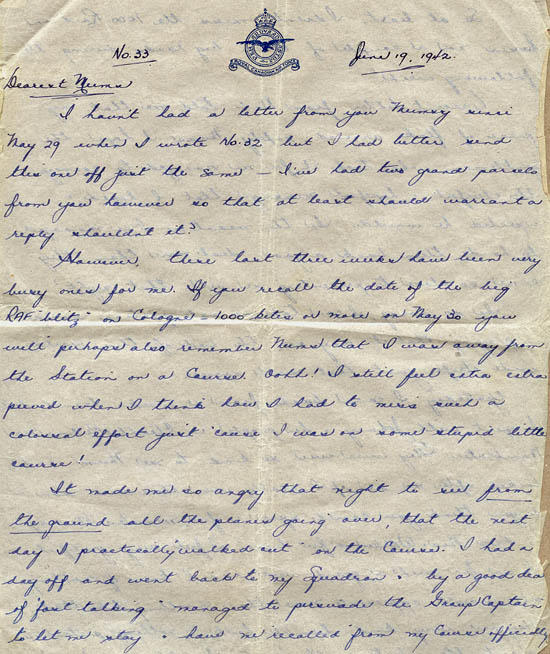 No. 33
June 19, 1942.
Dearest Mums
I havn't had a letter from you Mumsy since
May 29 when I wrote No. 32 but I had better send
this one off just the same - I've had two grand parcels
from you however so that at least should warrant a
reply shouldn't it?
However, these last three weeks have been very
busy ones for me. If you recall the date of the big
RAF "blitz" on Cologne - 1000 kites or more on May 30 you
will perhaps also remember Mums that I was away from
the Station on a Course. Oohh! I still feel extra extra
peeved when I think how I had to miss such a
colossal effort just 'cause I was on some stupid little
course!
It made me so angry that night to see from
the ground all the planes going over, that the next
day I practically "walked out" on the Course. I had a
day off and went back to my Squadron & by a good deal
of "fast talking" managed to persuade the Group Captain
to let me stay & have me recalled from my Course officially